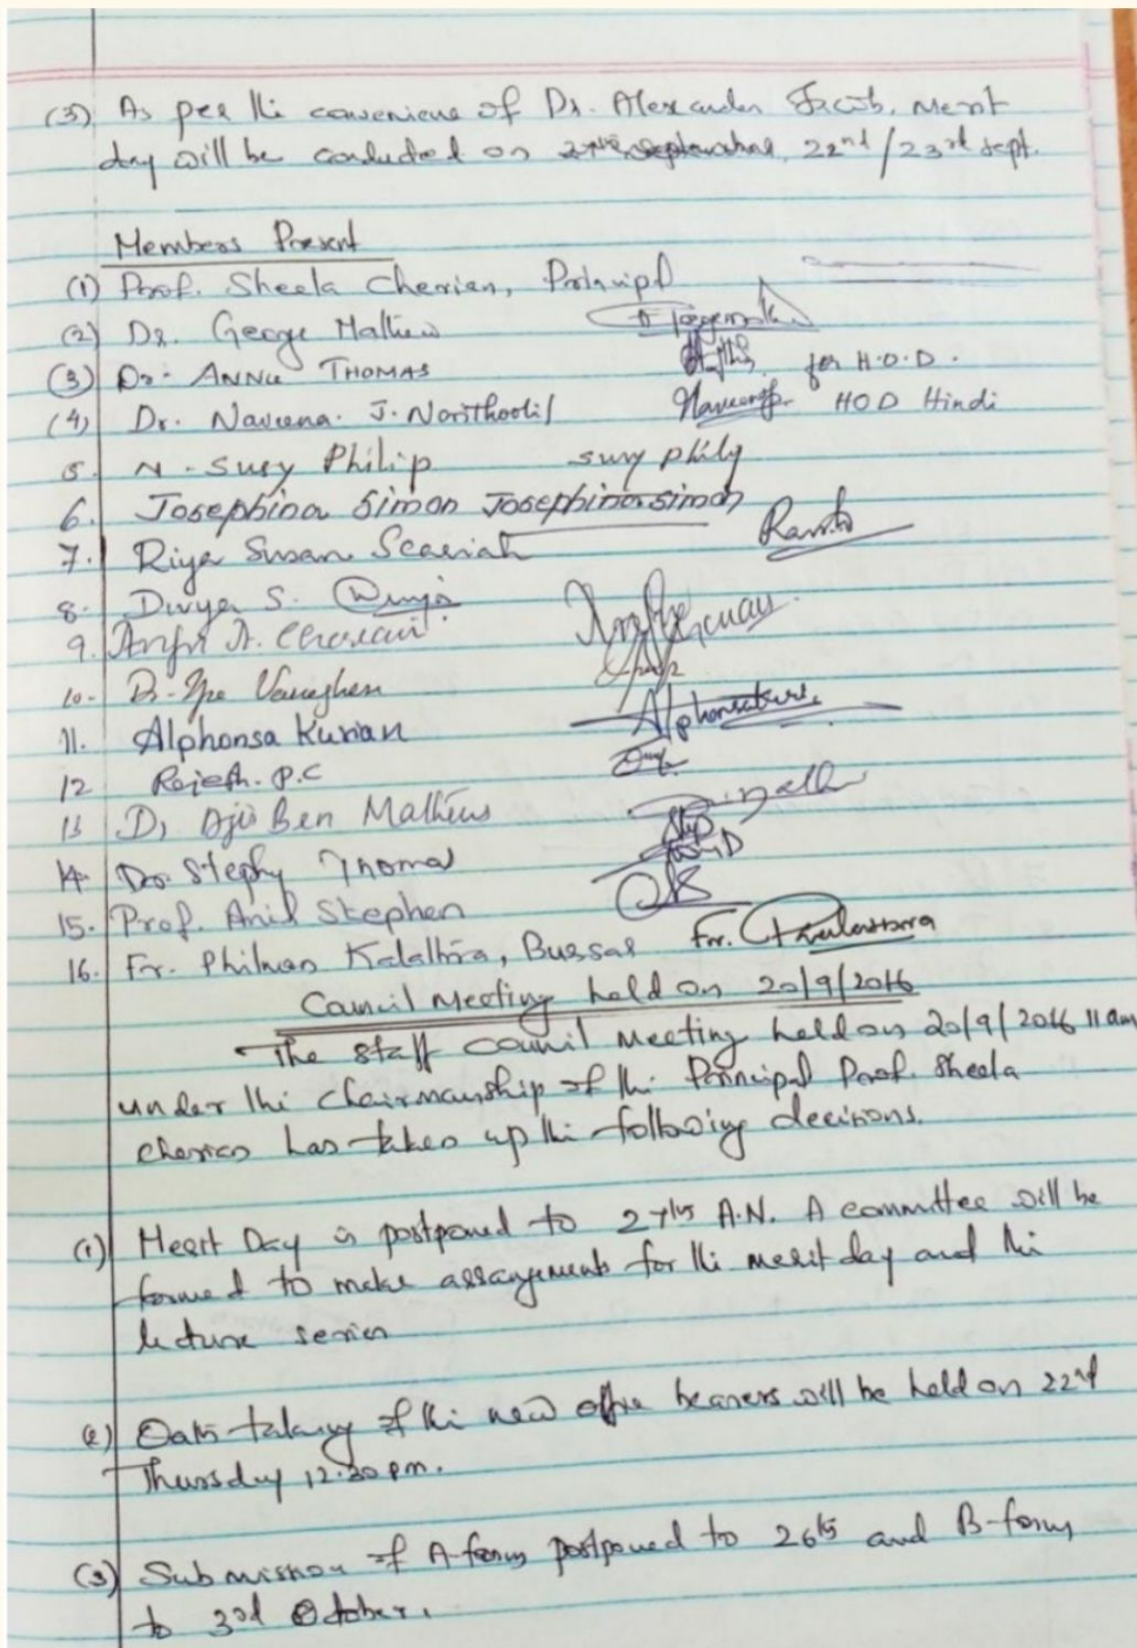 (3) As per the convenience of Dr. Alexander Jacob, merit
day will be conducted on 22nd/23rd sept.
Members Present
(1) Prof. Sheela Cherian, Principal
(2) Dr. George Mathew
(3) Dr. ANNU THOMAS for H.O.D.
(4) Dr. Naveena J. Narithookil HOD Hindi
5. N. Susy Philip susy philip
6. Josephina Simon Josephina simon
7. Riya Susan Scariah
8. Divya S. Divya
9. A.
10. Varughese
11. Alphonsa Kurian
12 Rajesh. P.C
13 Dr Ajis Ben Mathews
14. Dr. Stephy Thomas
15. Prof. Anil Stephen
16. Fr. Philmon Kalathra, Bursar Fr.
Council Meeting held on 20/9/2016
The staff council meeting held on 20/9/2016 11 am
under the chairmanship of the Principal Prof. Sheela
Cherian has taken up the following decisions.
(1) Merit Day is postponed to 27th A.N. A committee will be
formed to make arrangements for the merit day and the
lecture series
(2) Oath taking of the new office bearers will be held on 22nd
Thursday 12.30 pm.
(3) Submission of A-form postponed to 26th and B-form
to 3rd October.